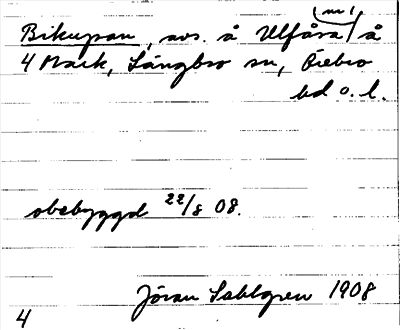 (nr)
Bikupan, avs. å Ulfåsa / å
4 Mark, Längbro sn, Örebro
hd o. l.
obebyggd 22/8 08.
Jöran Sahlgren 1908
4